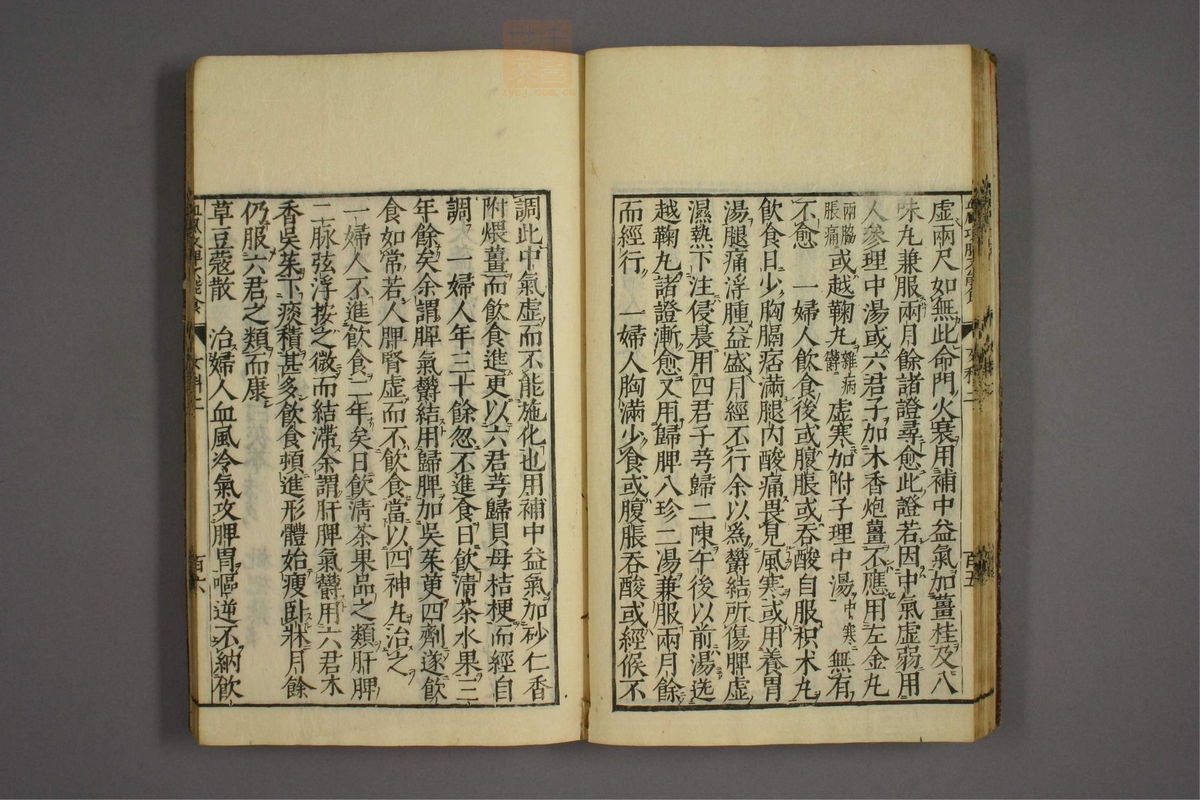 虛兩尺如無此命門火衰用補中益氣加薑桂及八
味丸兼服兩月餘諸證尋愈此證若因中氣虛弱用
人參理中湯或六君子加木香炮薑不應用左金丸
兩脇脹痛或越鞠丸雜病鬱虛寒加附子理中湯中寒無有
不愈 一婦人飲食後或腹脹或吞酸自服枳朮丸
飲食日少胸膈痞滿腿內酸痛畏見風寒或用養胃
湯腿痛浮腫益盛月經不行余以爲鬱結所傷脾虛
濕熱下注侵晨用四君子芎歸二陳午後以前湯送
越鞠丸諸證漸愈又用歸脾八珍二湯兼服兩月餘
而經行 一婦人胸滿少食或腹脹吞酸或經候不
百五
調此中氣虛而不能施化也用補中益氣加砂仁香
附煨薑而飲食進更以六君芎歸貝母桔梗而經自
調 一婦人年三十餘忽不進食日飲清茶水果三
年餘矣余謂脾氣鬱結用歸脾加吳茱萸四劑遂飲
食如常若人脾腎虛而不飲食當以四神丸治之
一婦人不進飲食二年矣日飲清茶果品之類肝脾
二脉弦浮按之微而結滯余謂肝脾氣鬱用六君木
香吳茱下痰積甚多飲食頓進形體始瘦臥牀月餘
仍服六君之類而康
草豆蔻散 治婦人血風冷氣攻脾胃嘔逆不納飲
百六